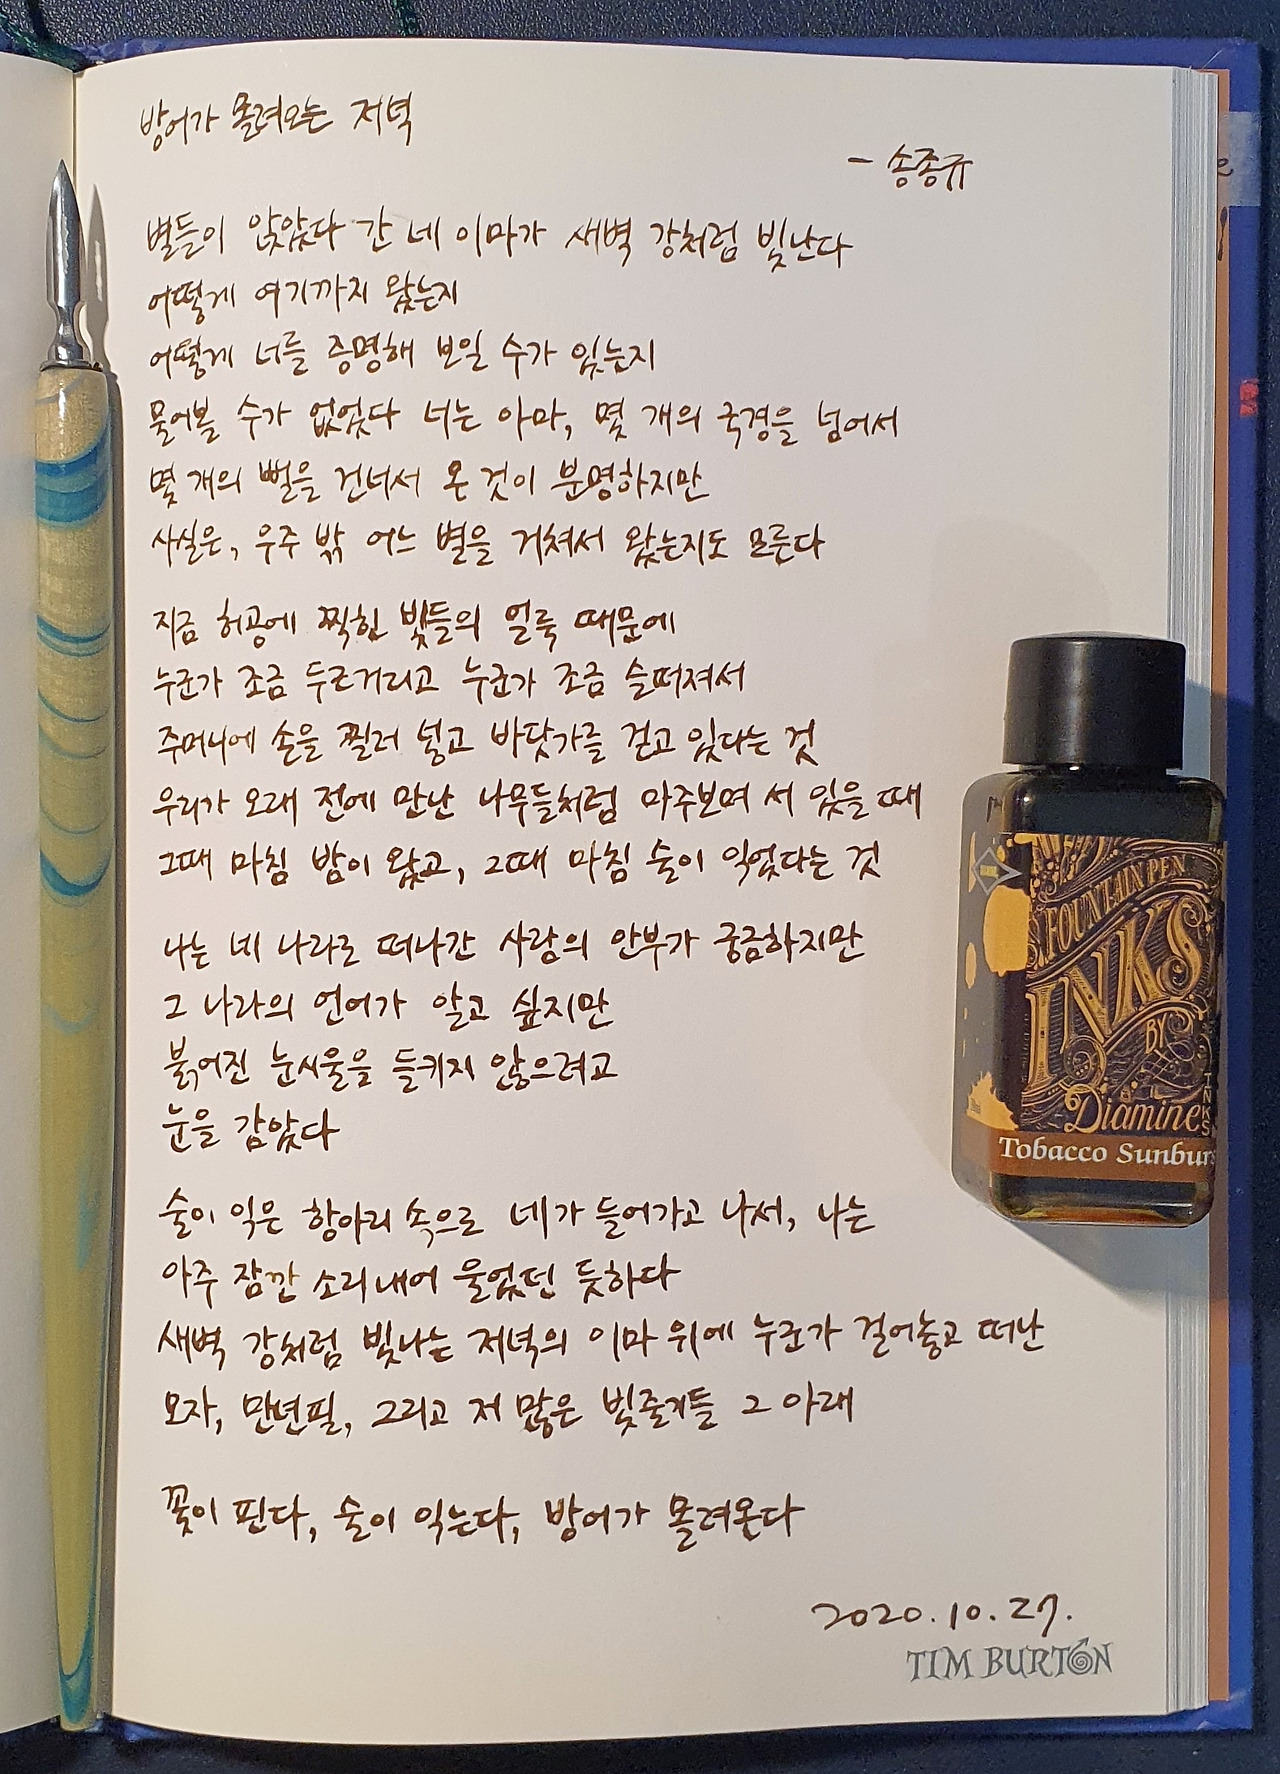 방어가 몰려오는 저녁
- 송종규
별들이 앉았다 간 네 이마가 새벽 강처럼 빛난다
어떻게 여기까지 왔는지
어떻게 너를 증명해 보일 수가 있는지
물어볼 수가 없었다 너는 아마, 몇 개의 국경을 넘어서
몇 개의 뻘을 건너서 온 것이 분명하지만
사실은, 우주 밖 어느 별을 거쳐서 왔는지도 모른다
지금 허공에 찍힌 빛들의 얼룩 때문에
누군가 조금 두근거리고 누군가 조금 슬퍼져서
주머니에 손을 찔러 넣고 바닷가를 걷고 있다는 것
우리가 오래 전에 만난 나무들처럼 마주보며 서 있을 때
그때 마침 밤이 왔고, 그때 마침 술이 익었다는 것
나는 네 나라로 떠나간 사람의 안부가 궁금하지만
그 나라의 언어가 알고 싶지만
붉어진 눈시울을 들키지 않으려고
눈을 감았다
술이 익은 항아리 속으로 네가 들어가고 나서, 나는
아주 잠깐 소리내어 울었던 듯하다
새벽 강처럼 빛나는 저녁의 이마 위에 누군가 걸어놓고 떠난
모자, 만년필, 그리고 저 많은 빛줄기들 그 아래
꽃이 핀다, 술이 익는다, 방어가 몰려온다
2020. 10. 27.
TIM BURTON
FOUNTAIN PEN
INKS
BY
Diamine
Tobacco Sunburs